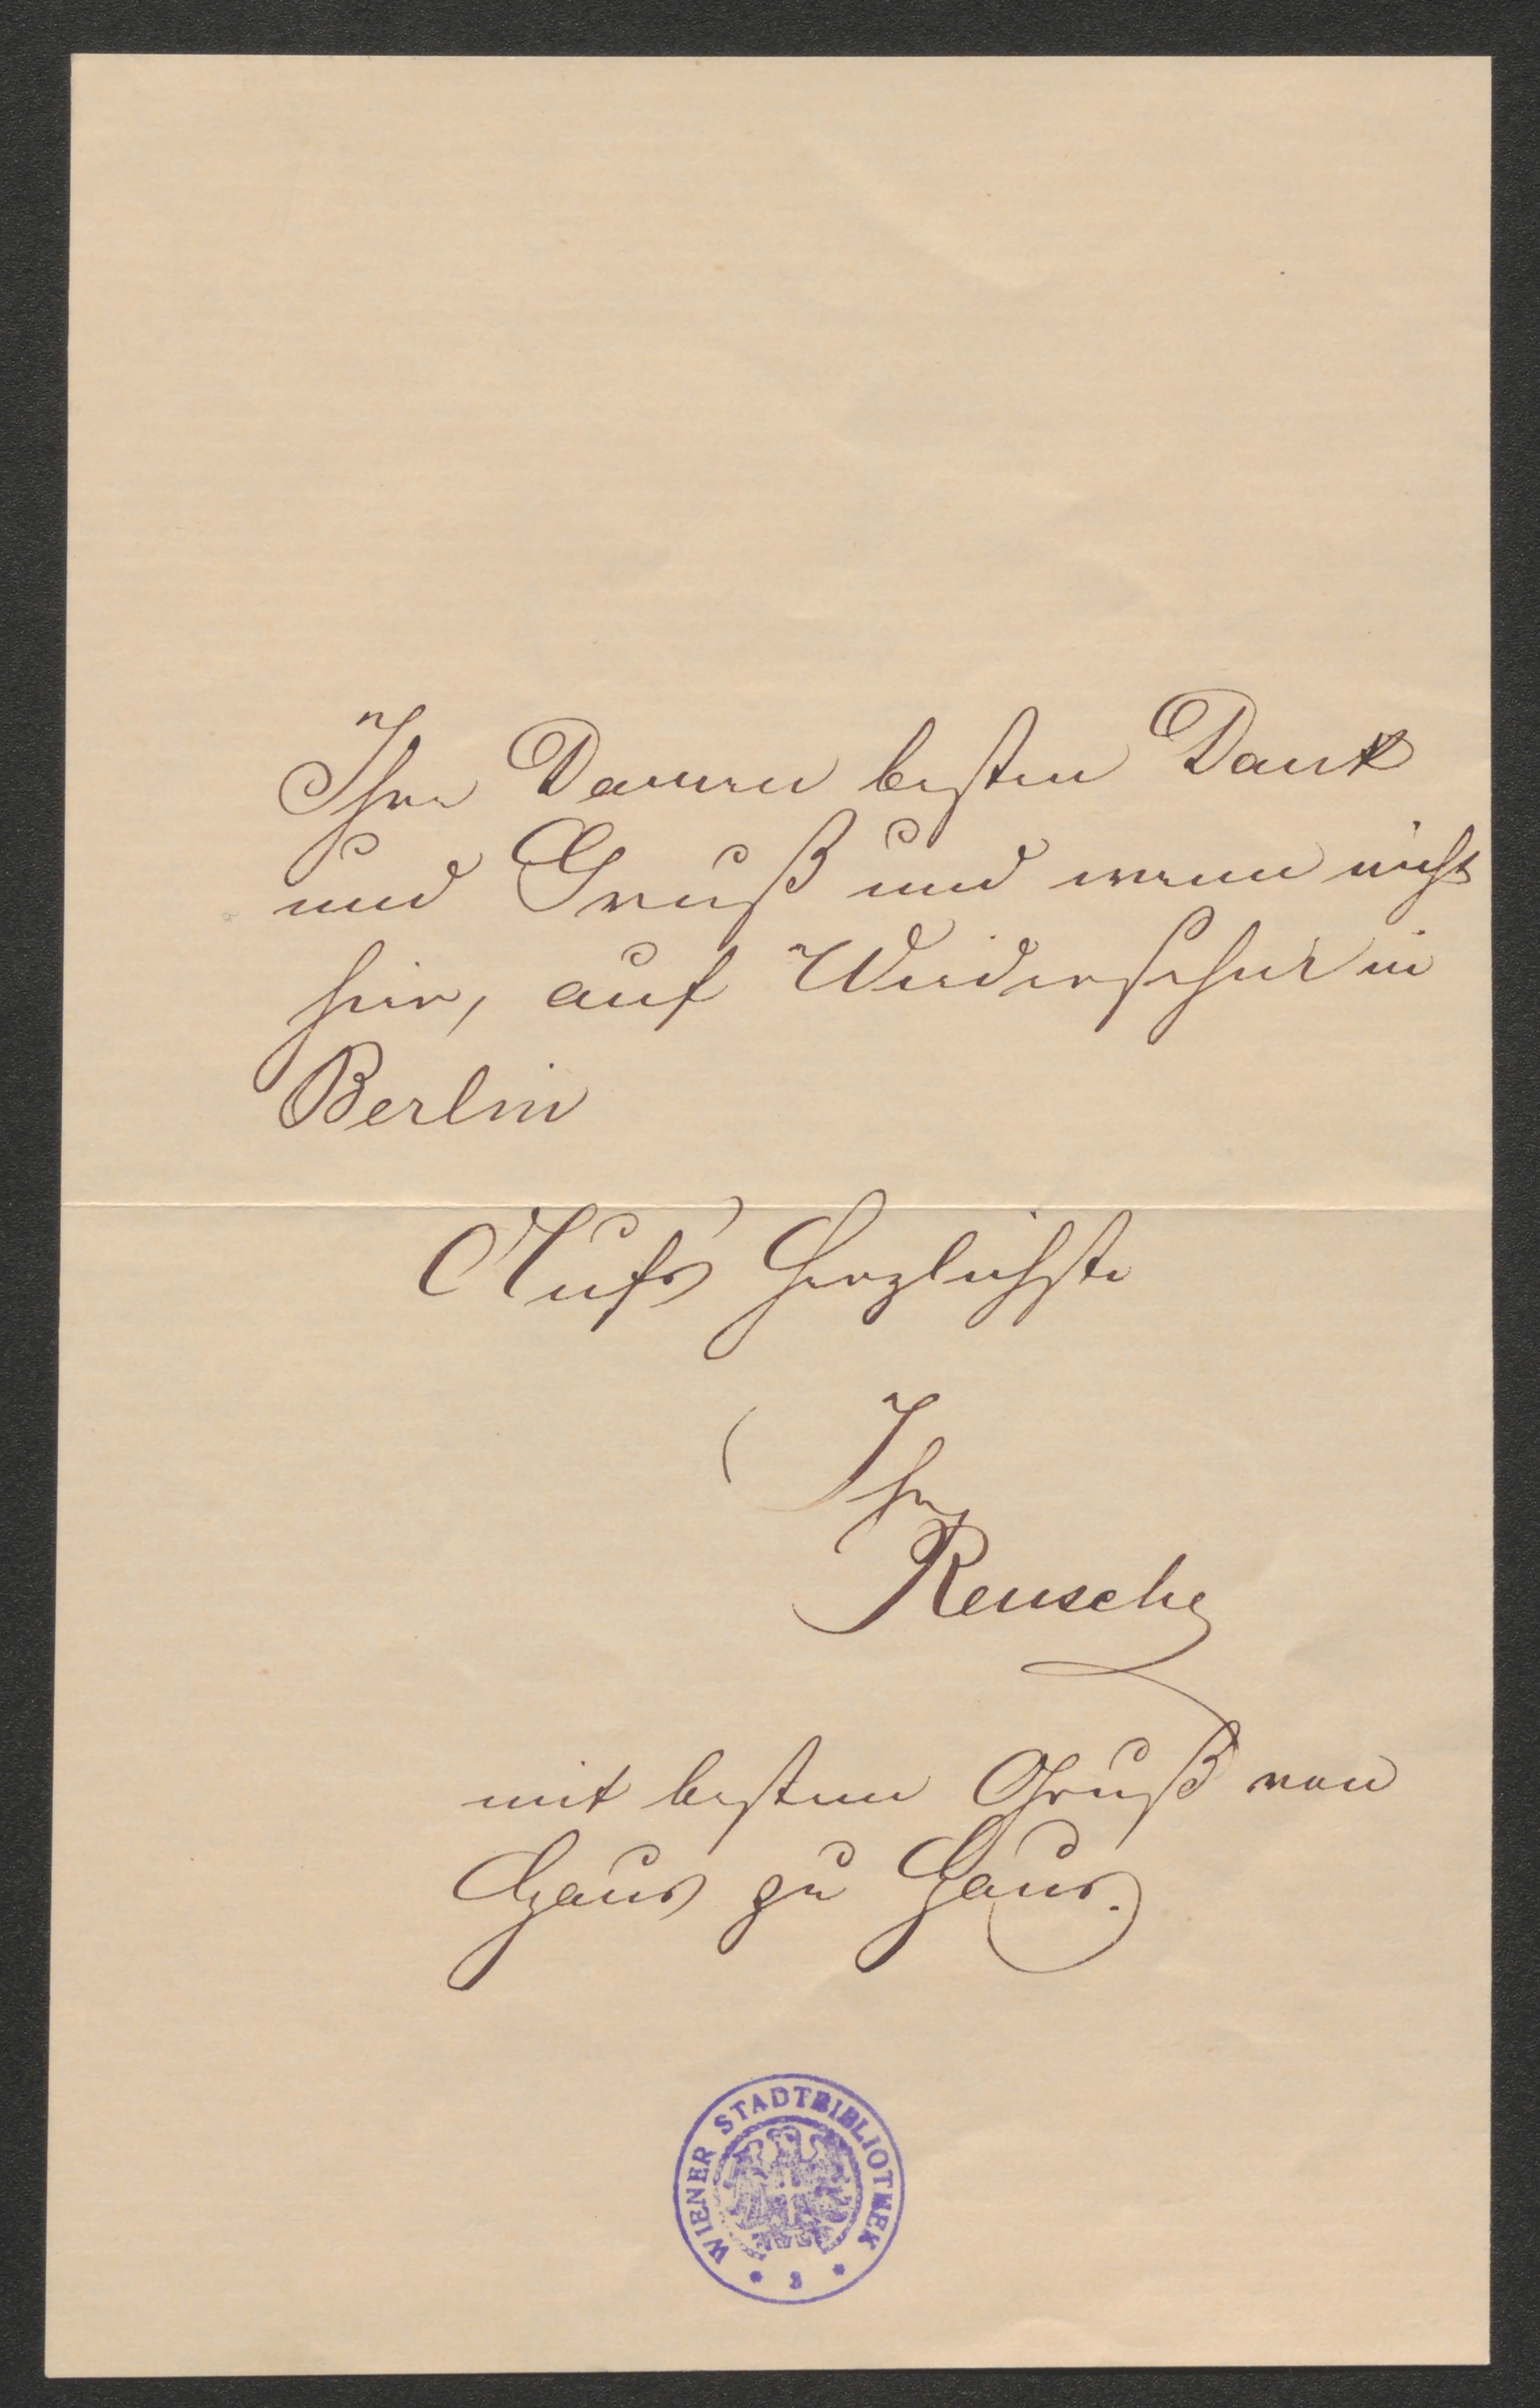 Ihren Damen besten Dank
und Gruß und wenn nicht
hier, auf Wiedersehen in
Berlin
Aufs Herzlichste
Ihr
Reusche
mit bestem Gruß von
Haus zu Haus.
WIENER STADTBIBLIOTHEK